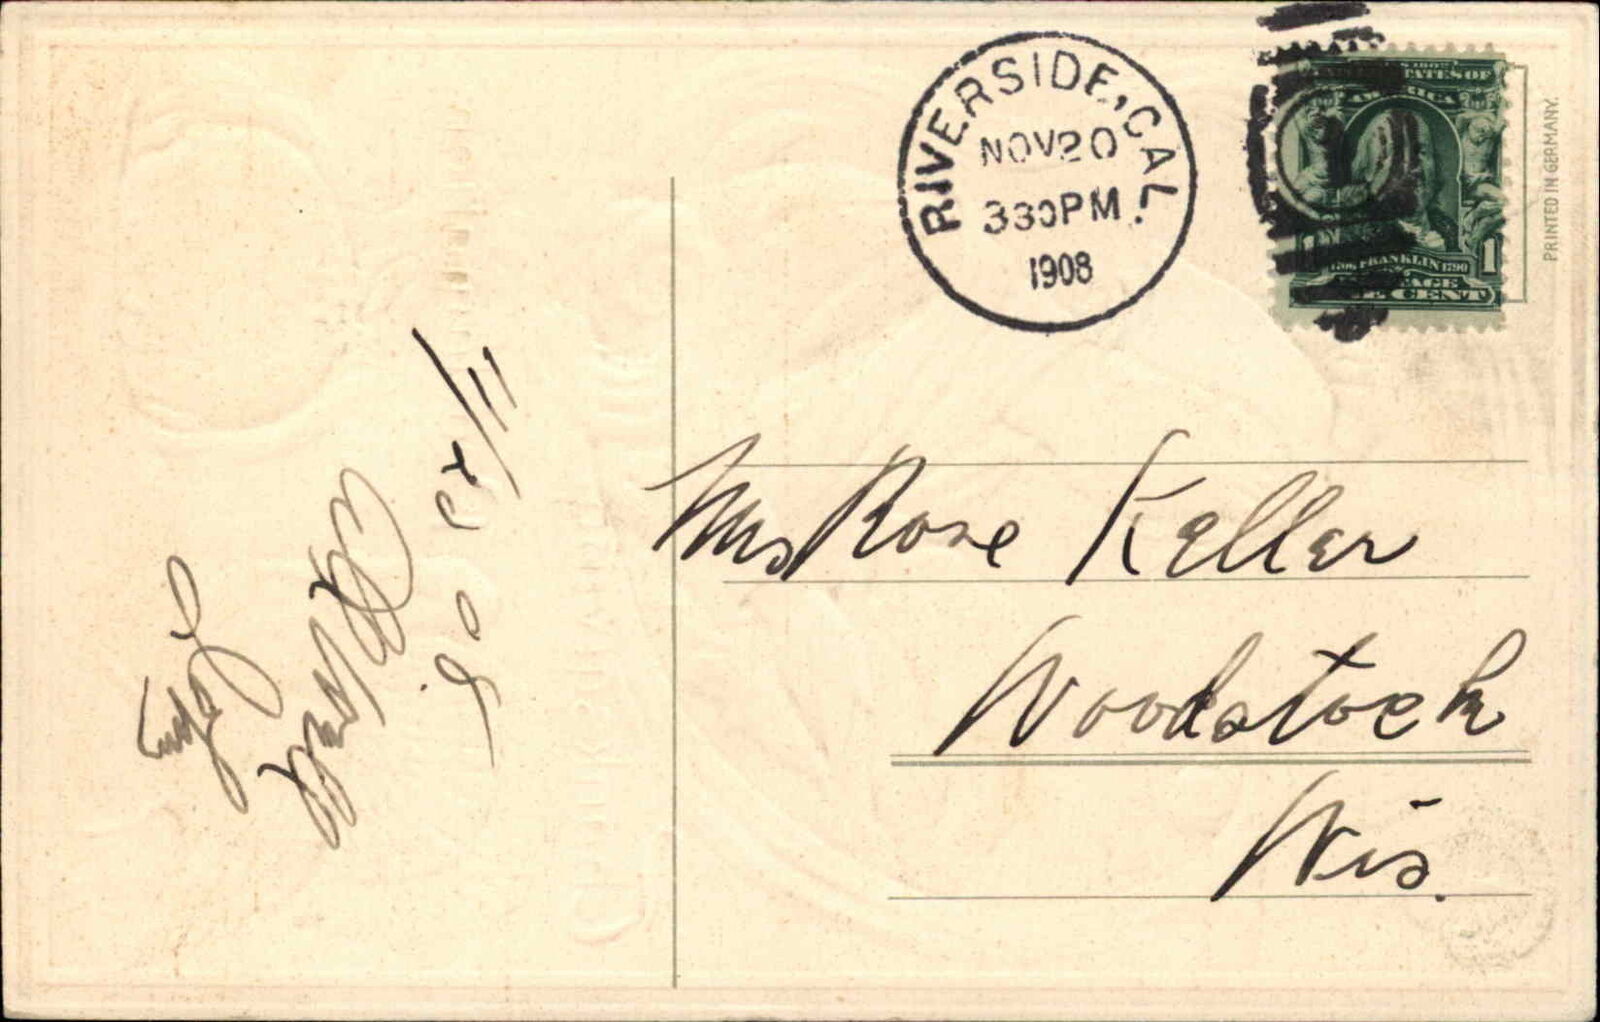 RIVERSIDE, CAL.
NOV 20
330PM
1908
UNITED STATES OF
AMERICA
1706 FRANKLIN 1790
1
POSTAGE
ONE CENT
PRINTED IN GERMANY.
Mrs Rose Keller
Woodstock
Wis.